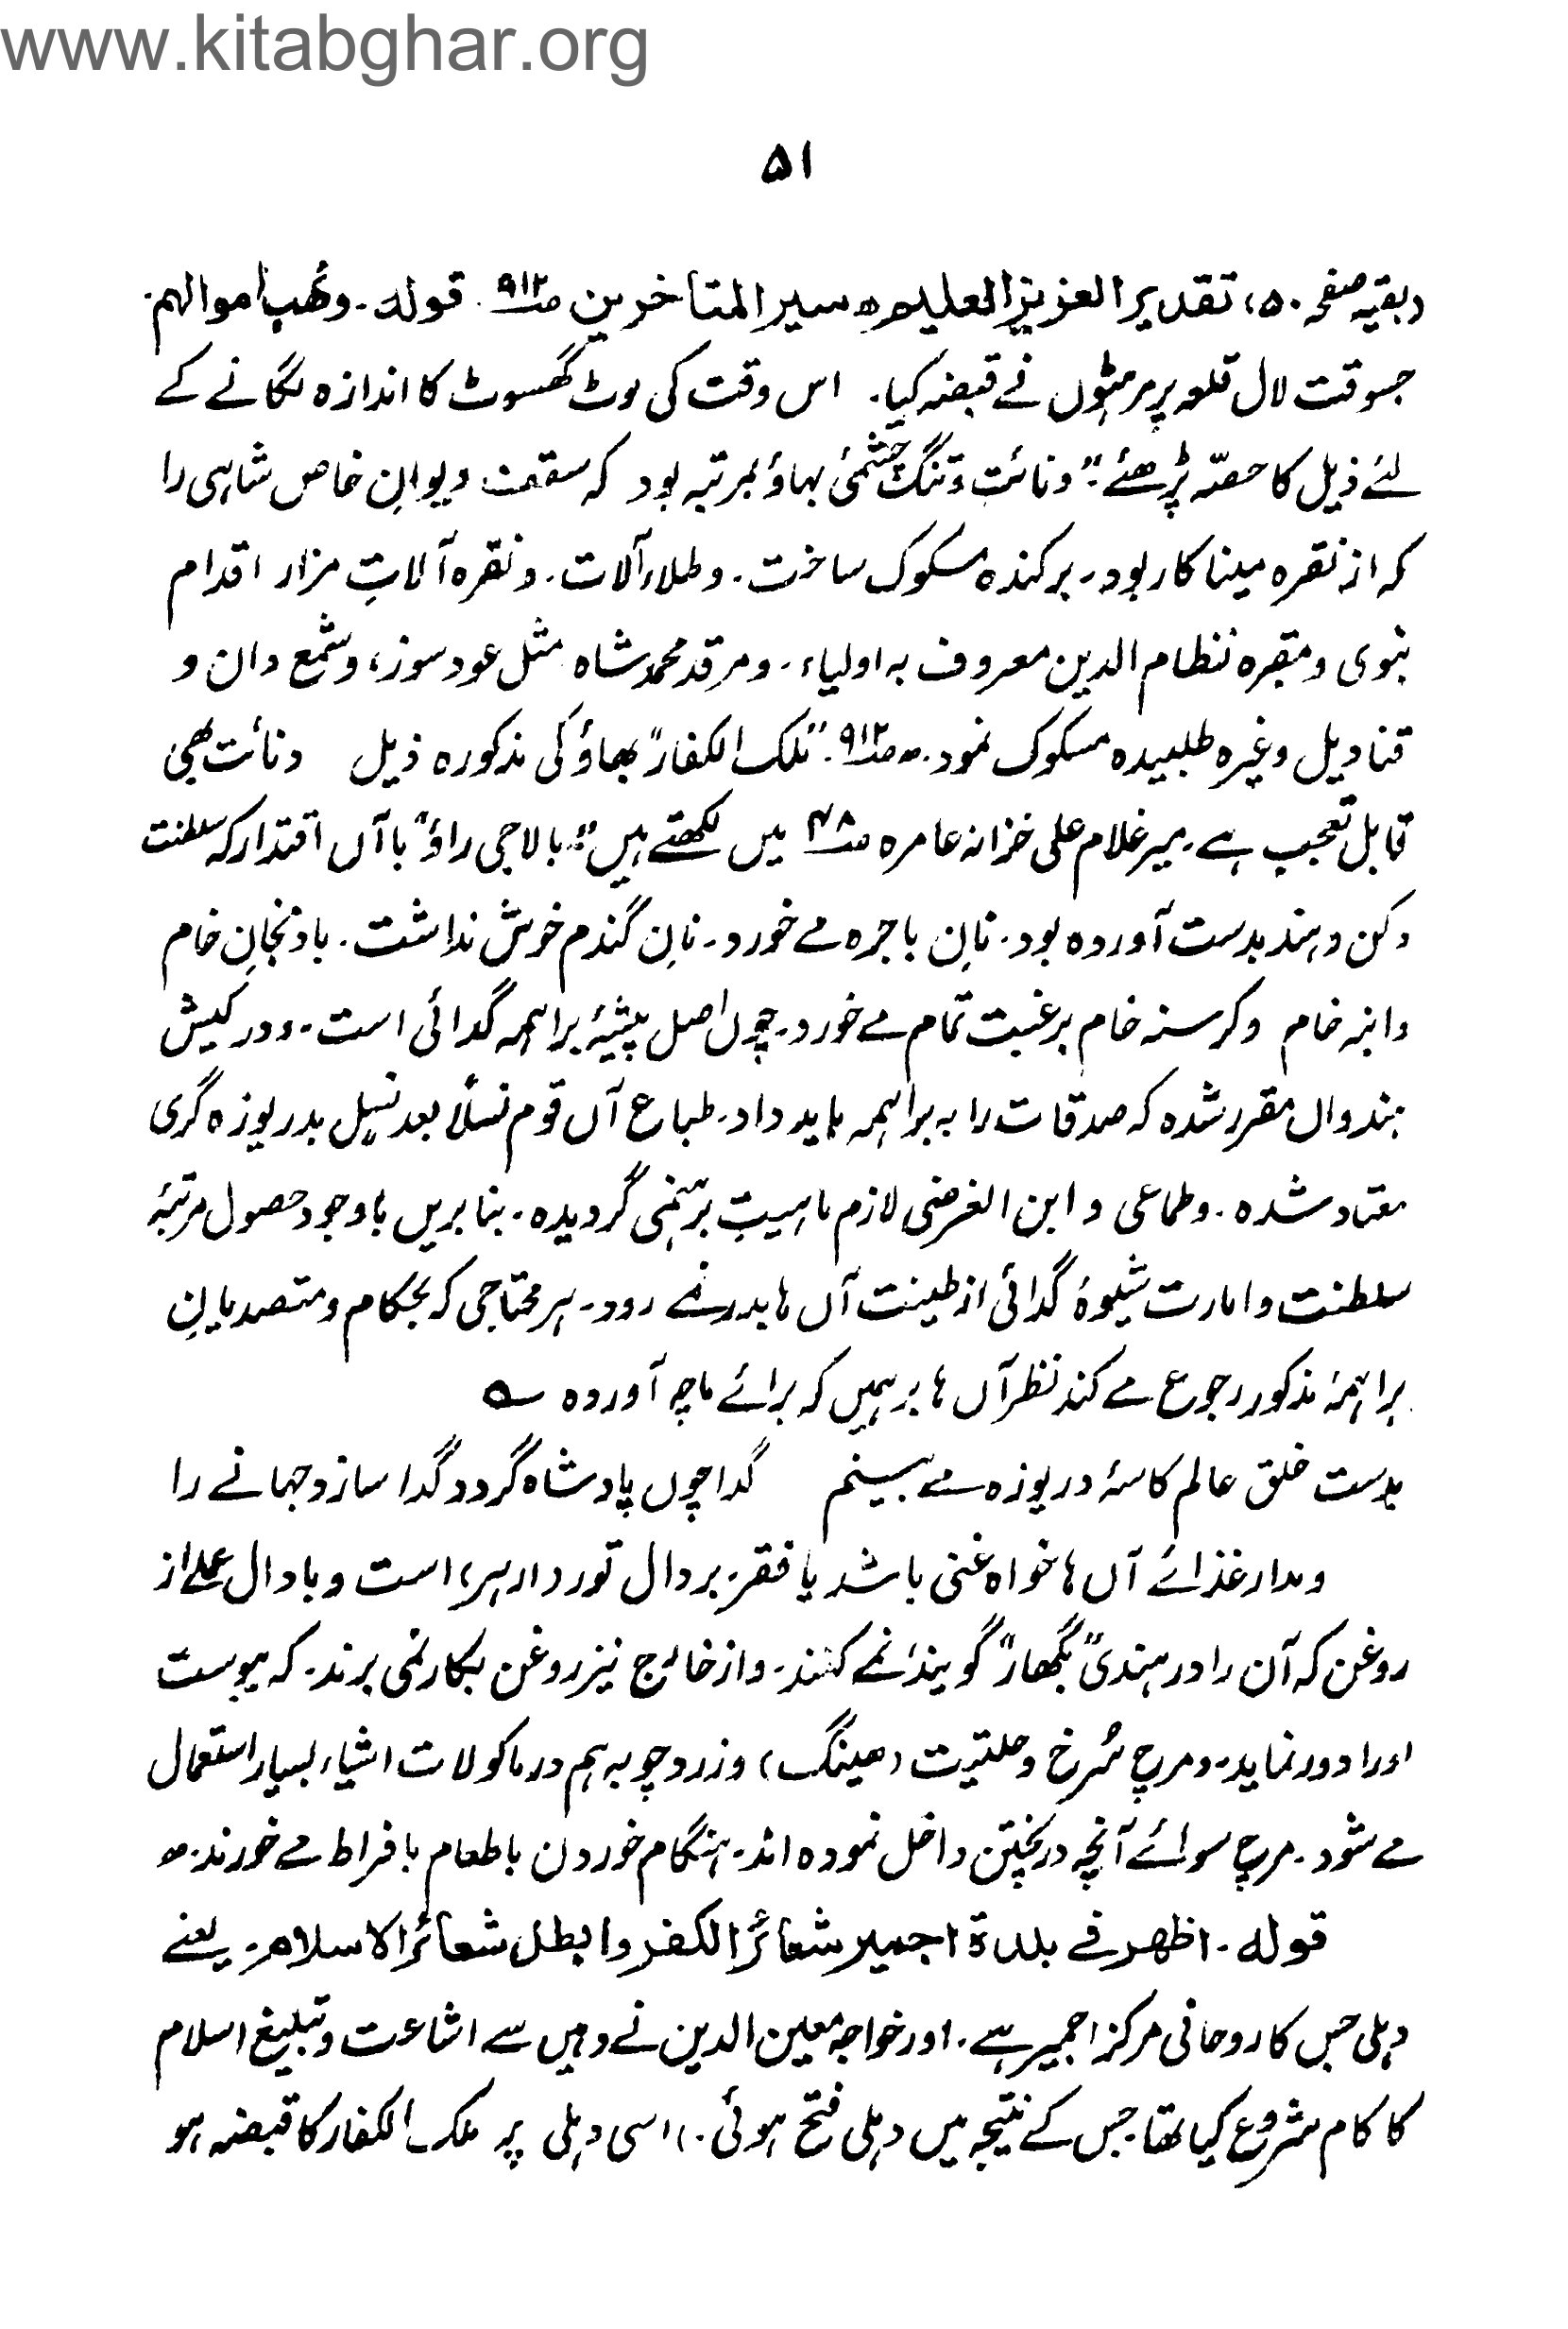 www.kitabghar.org
۵۱
(بقیہ صفحہ ۵۰) تقدیر العزیز العلیم ؁ سیر المتاخرین ص۹۱۲۔ قولہ۔ ونُھب اموالہم۔
جسوقت لال قلعہ پر مرہٹوں نے قبضہ کیا۔ اس وقت کی لوٹ گھسوٹ کا اندازہ لگانے کے
لئے ذیل کا حصّہ پڑھئے۔ "دنائت و تنگ چشمیٔ بہاؤ بمرتبہ بود کہ سقف دیوانِ خاص شاہی را
کہ از نقرہ مینا کار بود۔ برکندہ مسکوک ساخت۔ وطلاء آلات۔ و نقرہ آلاتِ مزار اقدام
نبوی و مقبرہ نظام الدین معروف بہ اولیاء۔ و مرقد محمد شاہ مثل عود سوز، و شمع دان و
قنادیل وغیرہ طلبیدہ مسکوک نمود۔ ص۹۱۲۔ "ملک الکفار" بھاؤ کی مذکورہ ذیل دنائت بھی
قابل تعجب ہے۔ میر غلام علی خزانہ عامرہ ص۴۸ میں لکھتے ہیں "بالاجی راؤ" باآں اقتدار کہ سلطنت
دکن و ہند بدست آوردہ بود۔ نانِ باجرہ مے خورد۔ نانِ گندم خوش نداشت۔ بادنجانِ خام
وانبہ خام وکرسنہ خام برغبت تمام مے خورد۔ چوں اصل پیشۂ براہمہ گدائی است۔ و در کیش
ہندواں مقرر شدہ کہ صدقات را بہ براہمہ باید داد۔ طباع آں قوم نسلاً بعد نسلٍ بدریوزہ گری
معتاد شدہ۔ وطماعی و ابن الغرضی لازم ماہیتِ برہمنی گردیدہ۔ بنا بریں باوجود حصول مرتبۂ
سلطنت وامارت شیوۂ گدائی از طینت آں ہا بدر نمے رود۔ ہر محتاجی کہ بحکام ومتصدیانِ
براہمۂ مذکور رجوع مے کند نظر آں ہا بر ہمیں کہ برائے ماچہ آوردہ ؎
بدست خلق عالم کاسۂ دریوزہ مے بینم گدا چوں پادشاہ گردد گدا سازد جہانے را
ومدار غذائے آں ہا خواہ غنی باشد یا فقیر بر دال تور (ارہر) است وبا دال عملے از
روغن کہ آن را در ہندی "بگھار" گویند نمے کنند۔ و از خارج نیز روغن بکار نمی برند۔ کہ یبوست
اورا دور نماید۔ و مرچ سُرخ و حلتیت (ھینگ) وزردچوبہ ہم در ماکولات اشیاء بسیار استعمال
مے شود۔ مرچ سوائے آنچہ در پختن داخل نمودہ اند۔ ہنگام خوردن با طعام بافراط مے خورند۔ ؁
قولہ۔ اظہر فے بلدۃ اجمیر شعائر الکفر وابطل شعائر الاسلام۔ یعنے
دہلی جس کا روحانی مرکز اجمیر ہے۔ اور خواجہ معین الدین نے وہیں سے اشاعت و تبلیغ اسلام
کا کام شروع کیا تھا۔ جس کے نتیجہ میں دہلی فتح ہوئی۔) اسی دہلی پر ملک الکفار کا قبضہ ہو